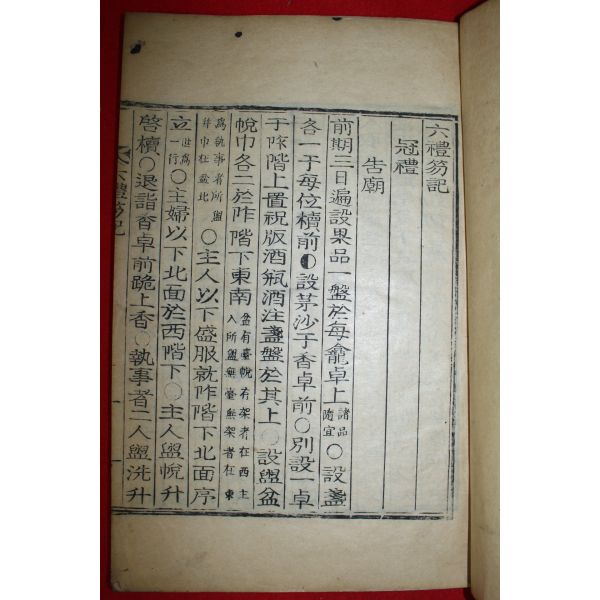 六禮笏記
冠禮
告廟
前期三日遍設果品一盤於每龕卓上諸品隨宜○設盞
各一于每位櫝前○設茅沙于香卓前○別設一卓
于阼階上置祝版酒甁酒注盞盤於其上○設盥盆
帨巾各二於阼階下東南盆有臺帨有架者在西主人所盥無臺無架者在東
爲執事者所盥幷巾在盆北○主人以下盛服就阼階下北面序
立世爲一行○主婦以下北面於西階下○主人盥帨升
啓櫝○退詣香卓前跪上香○執事者二人盥洗升
六禮笏記
一